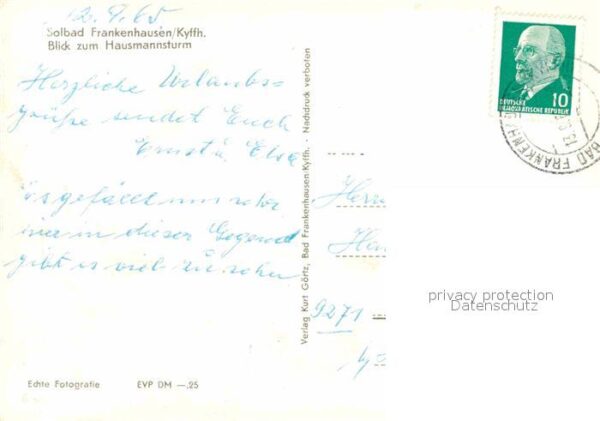 12.9.65
Solbad Frankenhausen/Kyffh.
Blick zum Hausmannsturm
Herzliche Urlaubs=
grüße sendet Euch
Ernst u. Elsa
Es gefällt uns sehr
hier in dieser Gegend
gibt es viel zu sehen
Echte Fotografie EVP DM —.25
Verlag Kurt Görtz, Bad Frankenhausen/Kyffh. · Nachdruck verboten
10
DEUTSCHE
DEMOKRATISCHE REPUBLIK
BAD FRANKENH
Herr
9271
privacy protection
Datenschutz